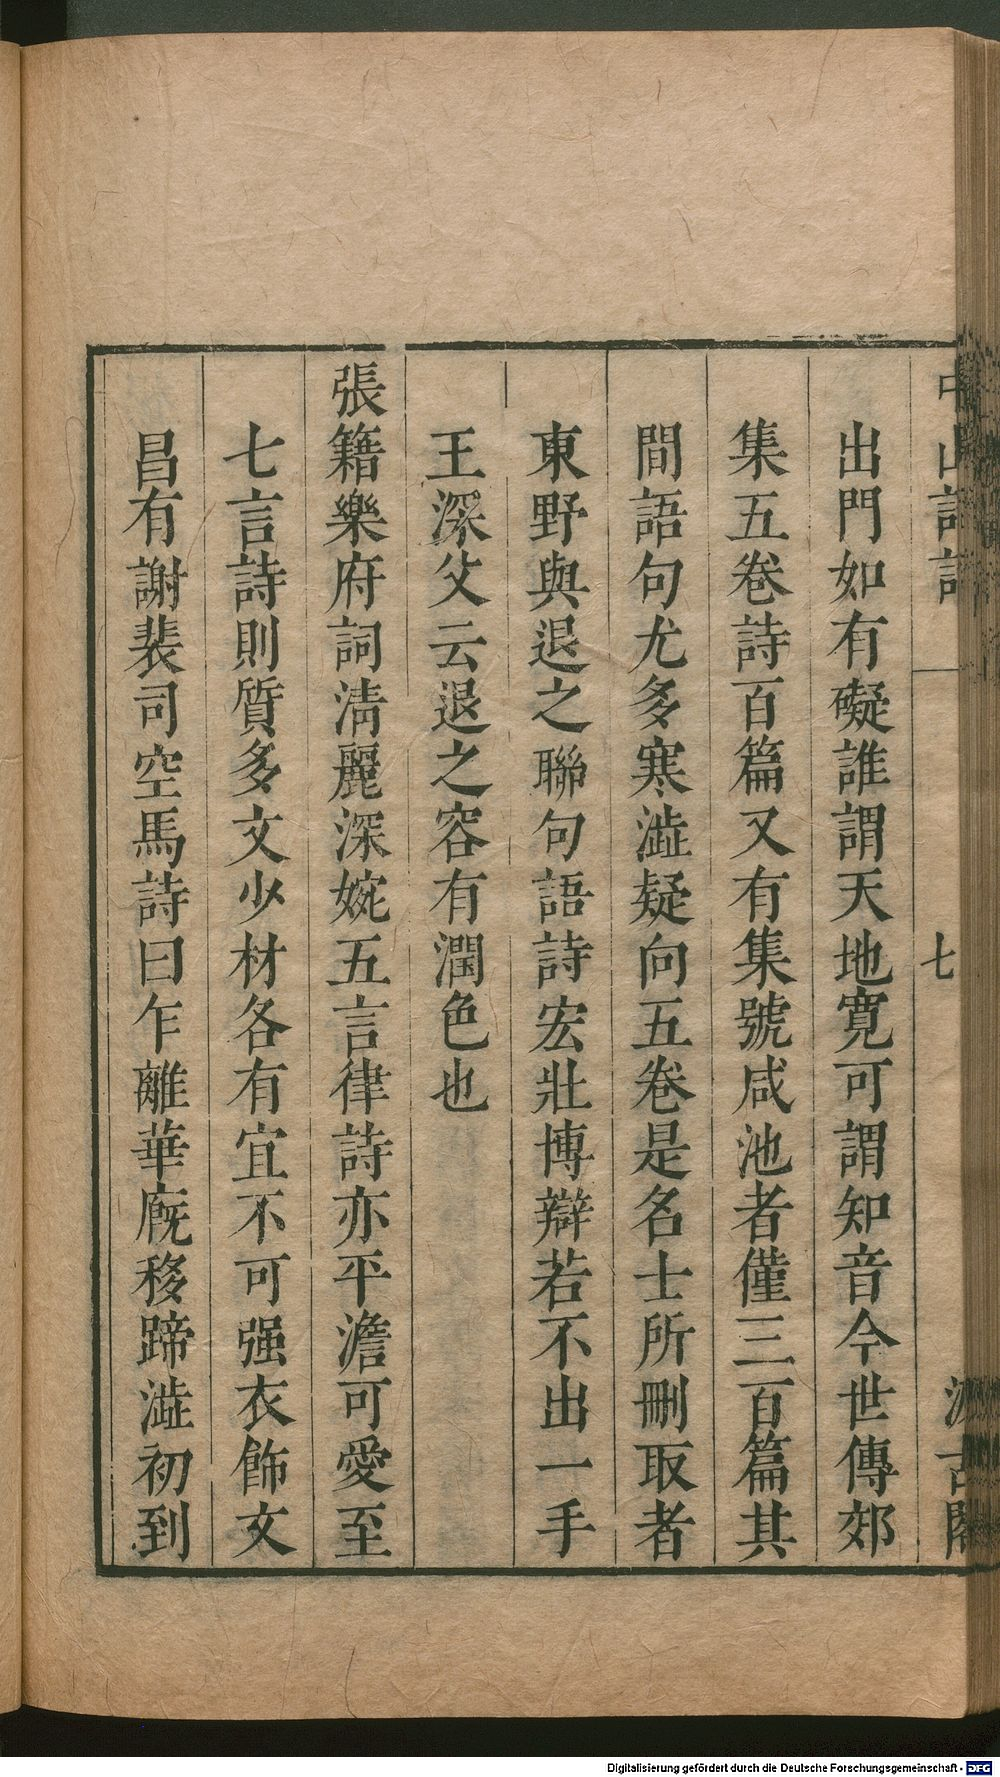 中山詩話
七
汲古閣
出門如有礙誰謂天地寛可謂知音今世傳郊
集五卷詩百篇又有集號咸池者僅三百篇其
間語句尤多寒澁疑向五卷是名士所刪取者
東野與退之聯句語詩宏壯博辯若不出一手
王深父云退之容有潤色也
張籍樂府詞淸麗深婉五言律詩亦平澹可愛至
七言詩則質多文少材各有宜不可强衣飾文
昌有謝裴司空馬詩曰乍離華廐移蹄澁初到
Digitalisierung gefördert durch die Deutsche Forschungsgemeinschaft - DFG